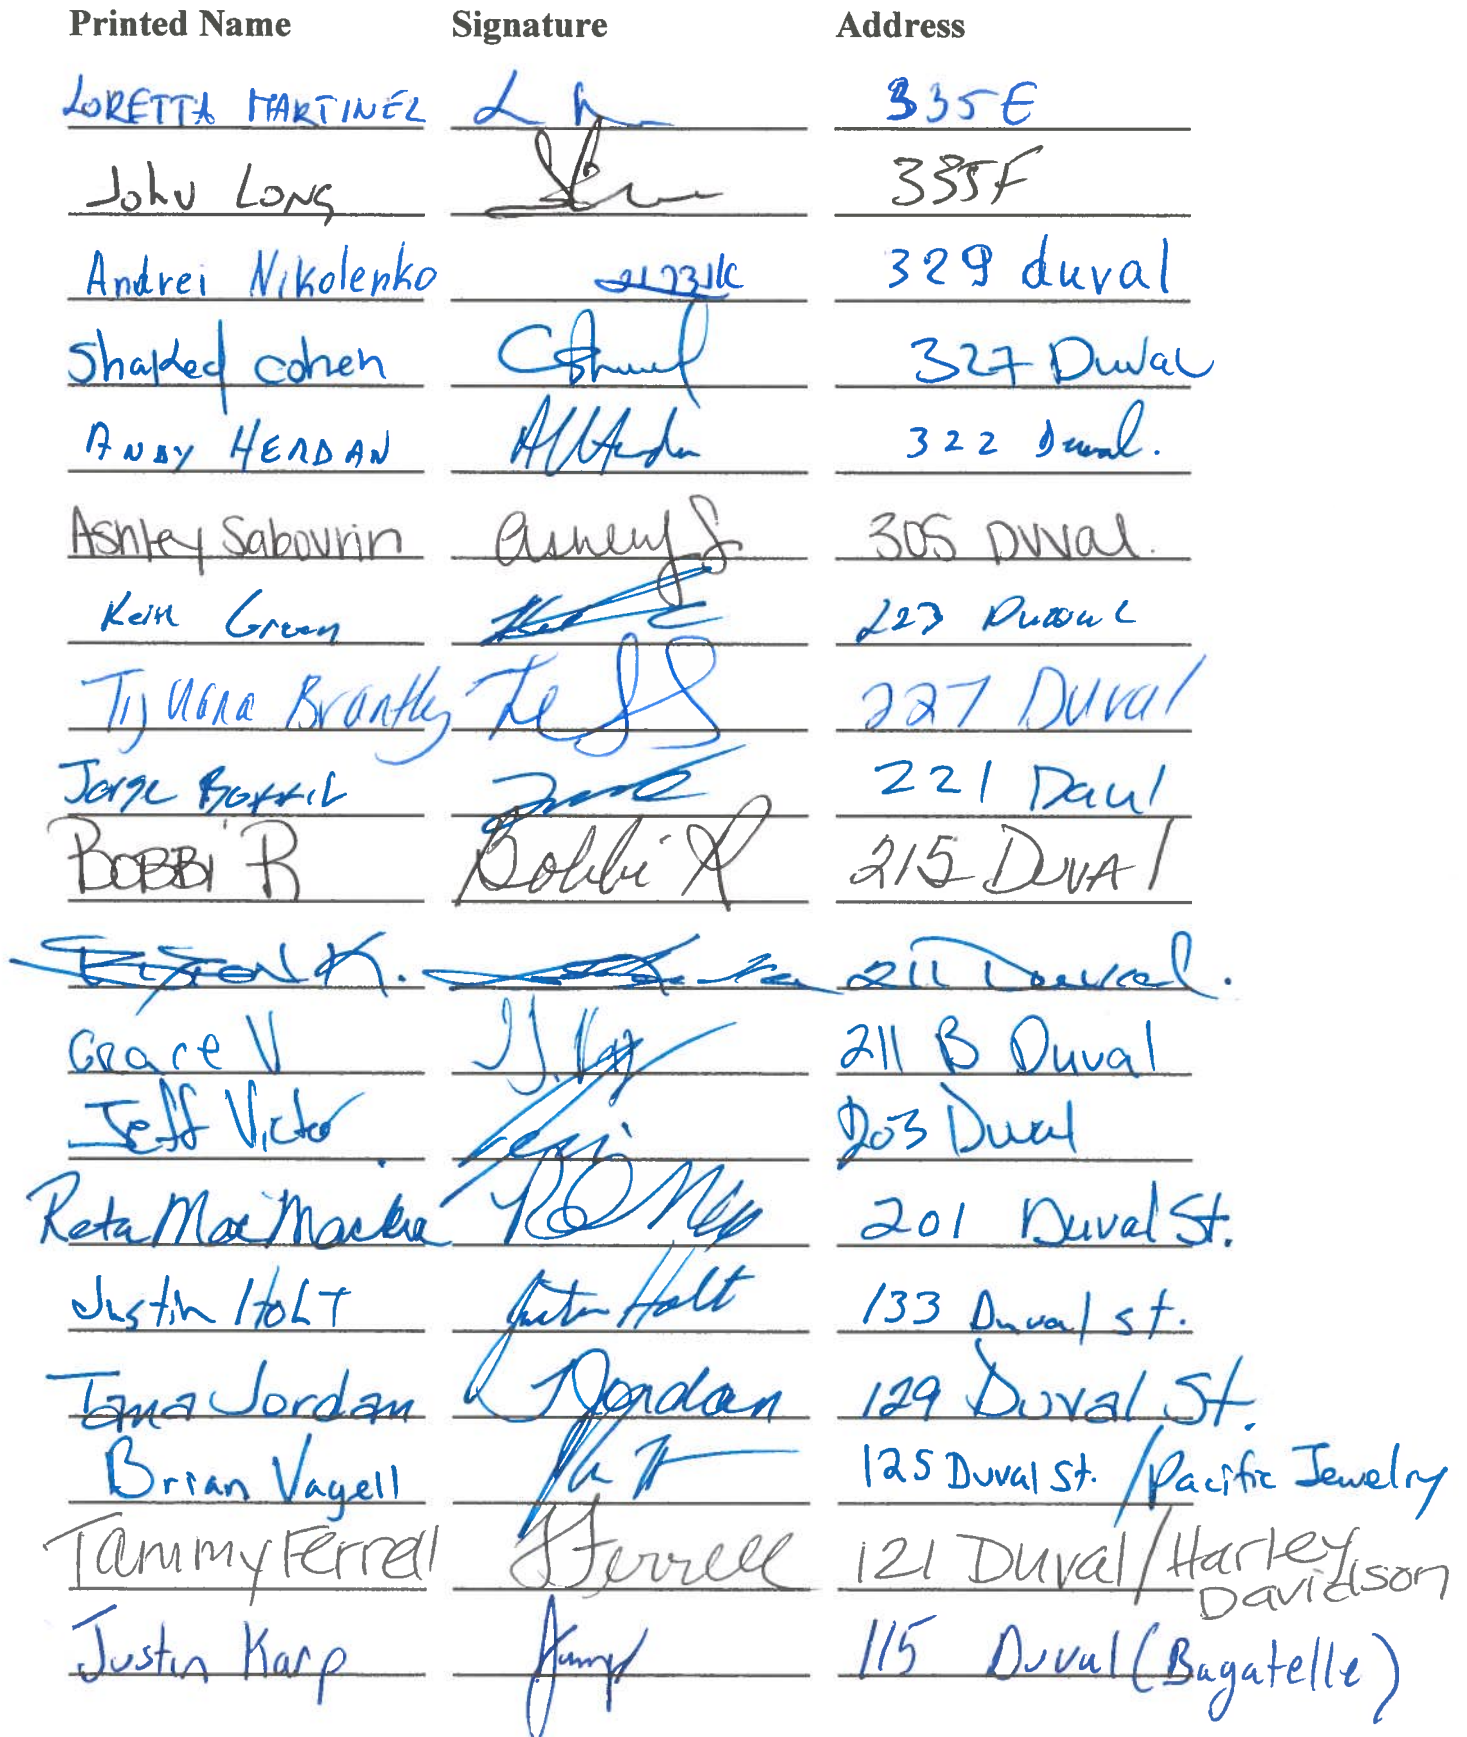 Printed Name Signature Address
LORETTA MARTINEZ L M 335E
John LONG 335F
Andrei Nikolenko 329 duval
Shaked cohen 327 Duval
ANDY HERDAN 322 Duval.
Ashley Sabourin Ashley S 305 DUVAL.
Keith Green 223 Duval
Tijuana Brantley 227 Duval
Jorge 221 Duval
BOBBI R Bobbi R 215 DUVAl
K. 211 Duval.
Grace V G. V 211 B Duval
Jeff Victor 203 Duval
Reta Mae 201 Duval St.
Justin HOLT Justin Holt 133 Duval st.
Tama Jordan T Jordan 129 Duval St.
Brian Vagell 125 Duval St. /Pacific Jewelry
Tammy Ferrell T Ferrell 121 Duval/Harley
Davidson
Justin Karp 115 Duval (Bagatelle)